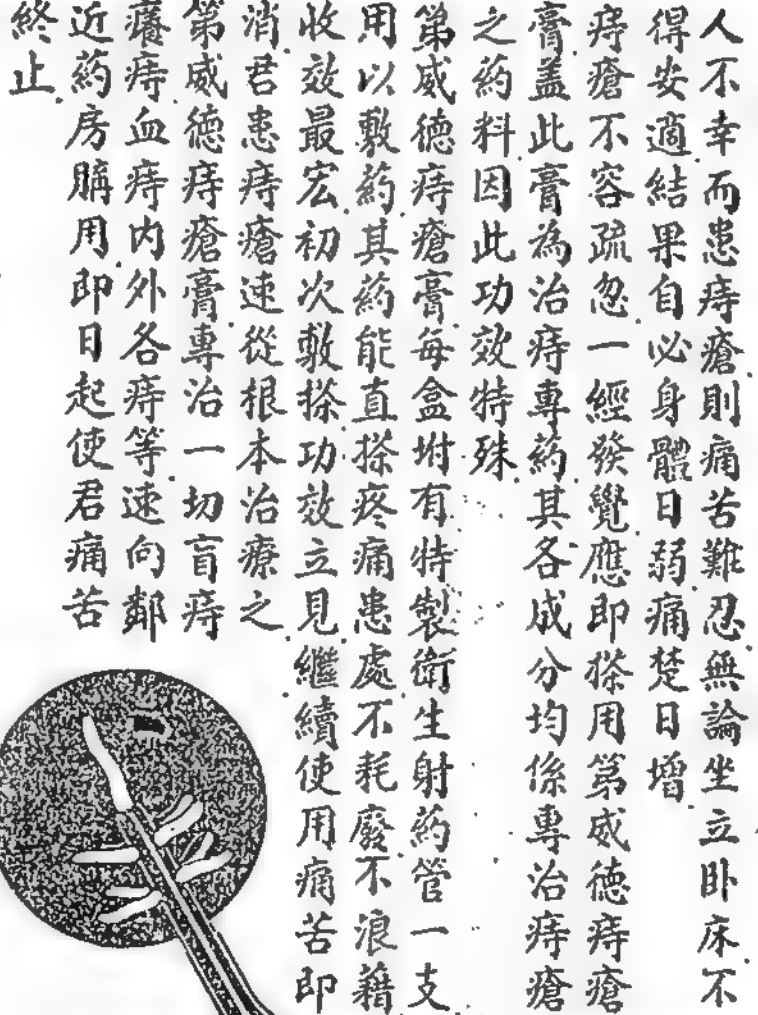 人不幸而患痔瘡則痛苦難忍無論坐立卧床不
得安適結果自必身體日弱痛楚日增
痔瘡不容疏忽一經發覺應即搽用第威德痔瘡
膏盖此膏為治痔專葯其各成分均係專治痔瘡
之葯料因此功效特殊
第威德痔瘡膏每盒坿有特製衛生射葯管一支
用以敷葯其葯能直搽疼痛患處不耗廢不浪藉
收效最宏初次敷搽功效立見繼續使用痛苦即
消君患痔瘡速從根本治療之
第威德痔瘡膏專治一切盲痔
癢痔血痔内外各痔等速向鄰
近葯房購用即日起使君痛苦
終止